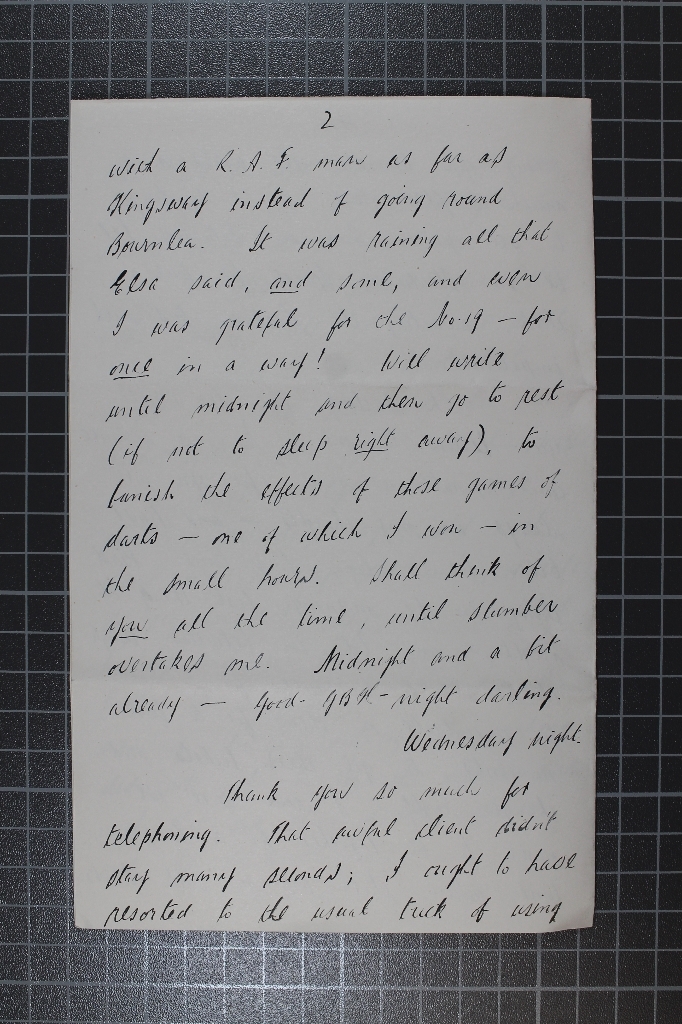 2
with a R.A.F. man as far as
Kingsway instead of going round
Bournlea. It was raining all that
Elsa said, and some, and even
I was grateful for the No. 19 — for
once in a way! Will write
until midnight and then go to rest
(if not to sleep right away), to
banish the effects of those games of
darts — one of which I won — in
the small hours. Shall think of
you all the time, until slumber
overtakes me. Midnight and a bit
already — Good-GBH-night darling.
Wednesday night.
Thank you so much for
telephoning. That awful client didn't
stay many seconds; I ought to have
resorted to the usual trick of using